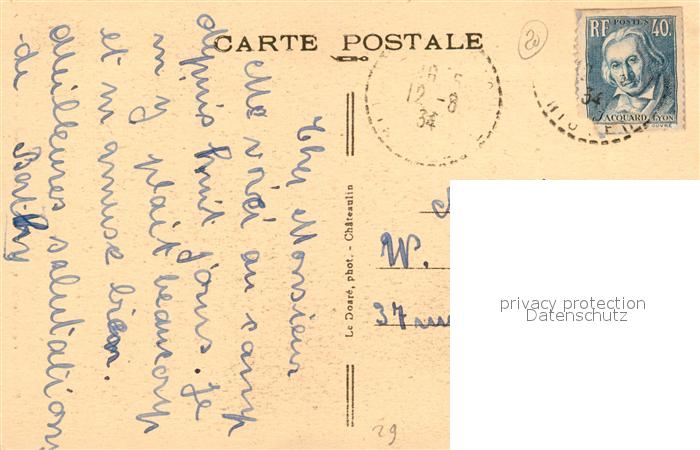 CARTE POSTALE
20
RF POSTES 40c
JACQUARD LYON
12 -8
34
34
Cher Monsieur
Me voici au camp
depuis huit jours. Je
m'y plait beaucoup
et m'amuse bien.
Meilleures salutations
de Berthy
Le Doaré, phot. - Châteaulin
W.
37 rue
29
privacy protection
Datenschutz